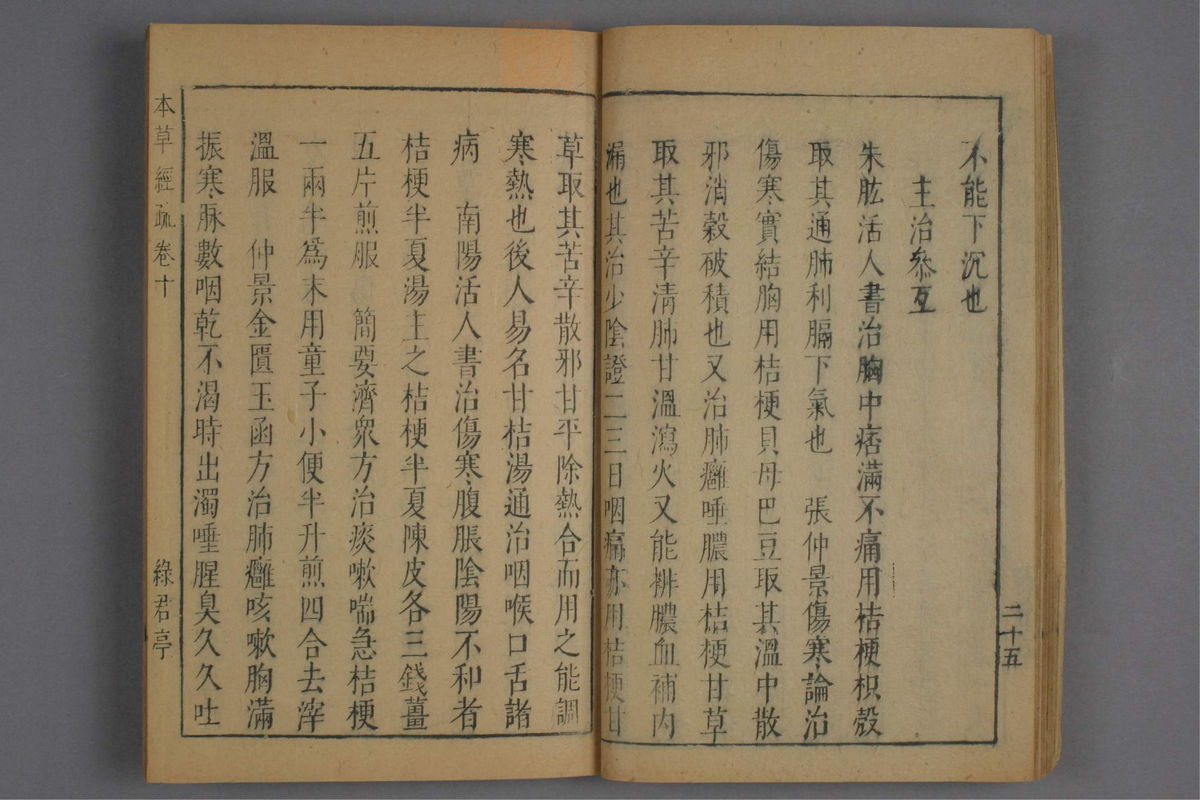 不能下沉也
主治參互
朱肱活人書治胸中痞滿不痛用桔梗枳殼
取其通肺利膈下氣也　張仲景傷寒論治
傷寒實結胸用桔梗貝母巴豆取其溫中散
邪消穀破積也又治肺癰唾膿用桔梗甘草
取其苦辛清肺甘溫瀉火又能排膿血補內
漏也其治少陰證二三日咽痛亦用桔梗甘
二十五
草取其苦辛散邪甘平除熱合而用之能調
寒熱也後人易名甘桔湯通治咽喉口舌諸
病　南陽活人書治傷寒腹脹陰陽不和者
桔梗半夏湯主之桔梗半夏陳皮各三錢薑
五片煎服　簡要濟眾方治痰嗽喘急桔梗
一兩半爲末用童子小便半升煎四合去滓
溫服　仲景金匱玉函方治肺癰咳嗽胸滿
振寒脉數咽乾不渴時出濁唾腥臭久久吐
本草經疏卷十
綠君亭